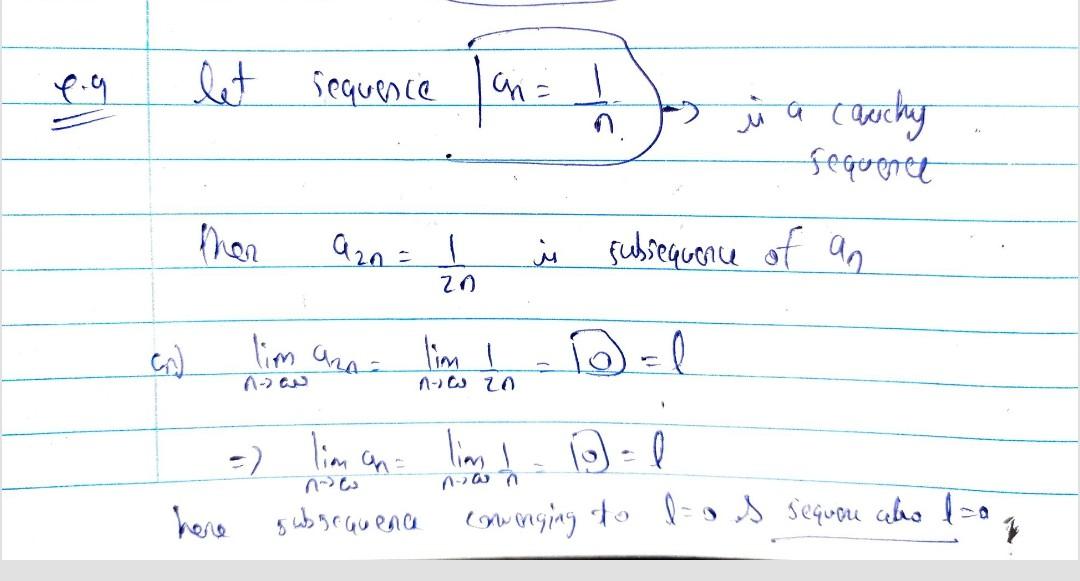 e.g let sequence an = 1/n → is a cauchy
sequence
then a2n = 1/2n is subsequence of an
lim n→∞ a2n = lim n→∞ 1/2n = 0 = l
=> lim n→∞ an = lim n→∞ 1/n = 0 = l
here subsequence converging to l=0 & sequence also l=0